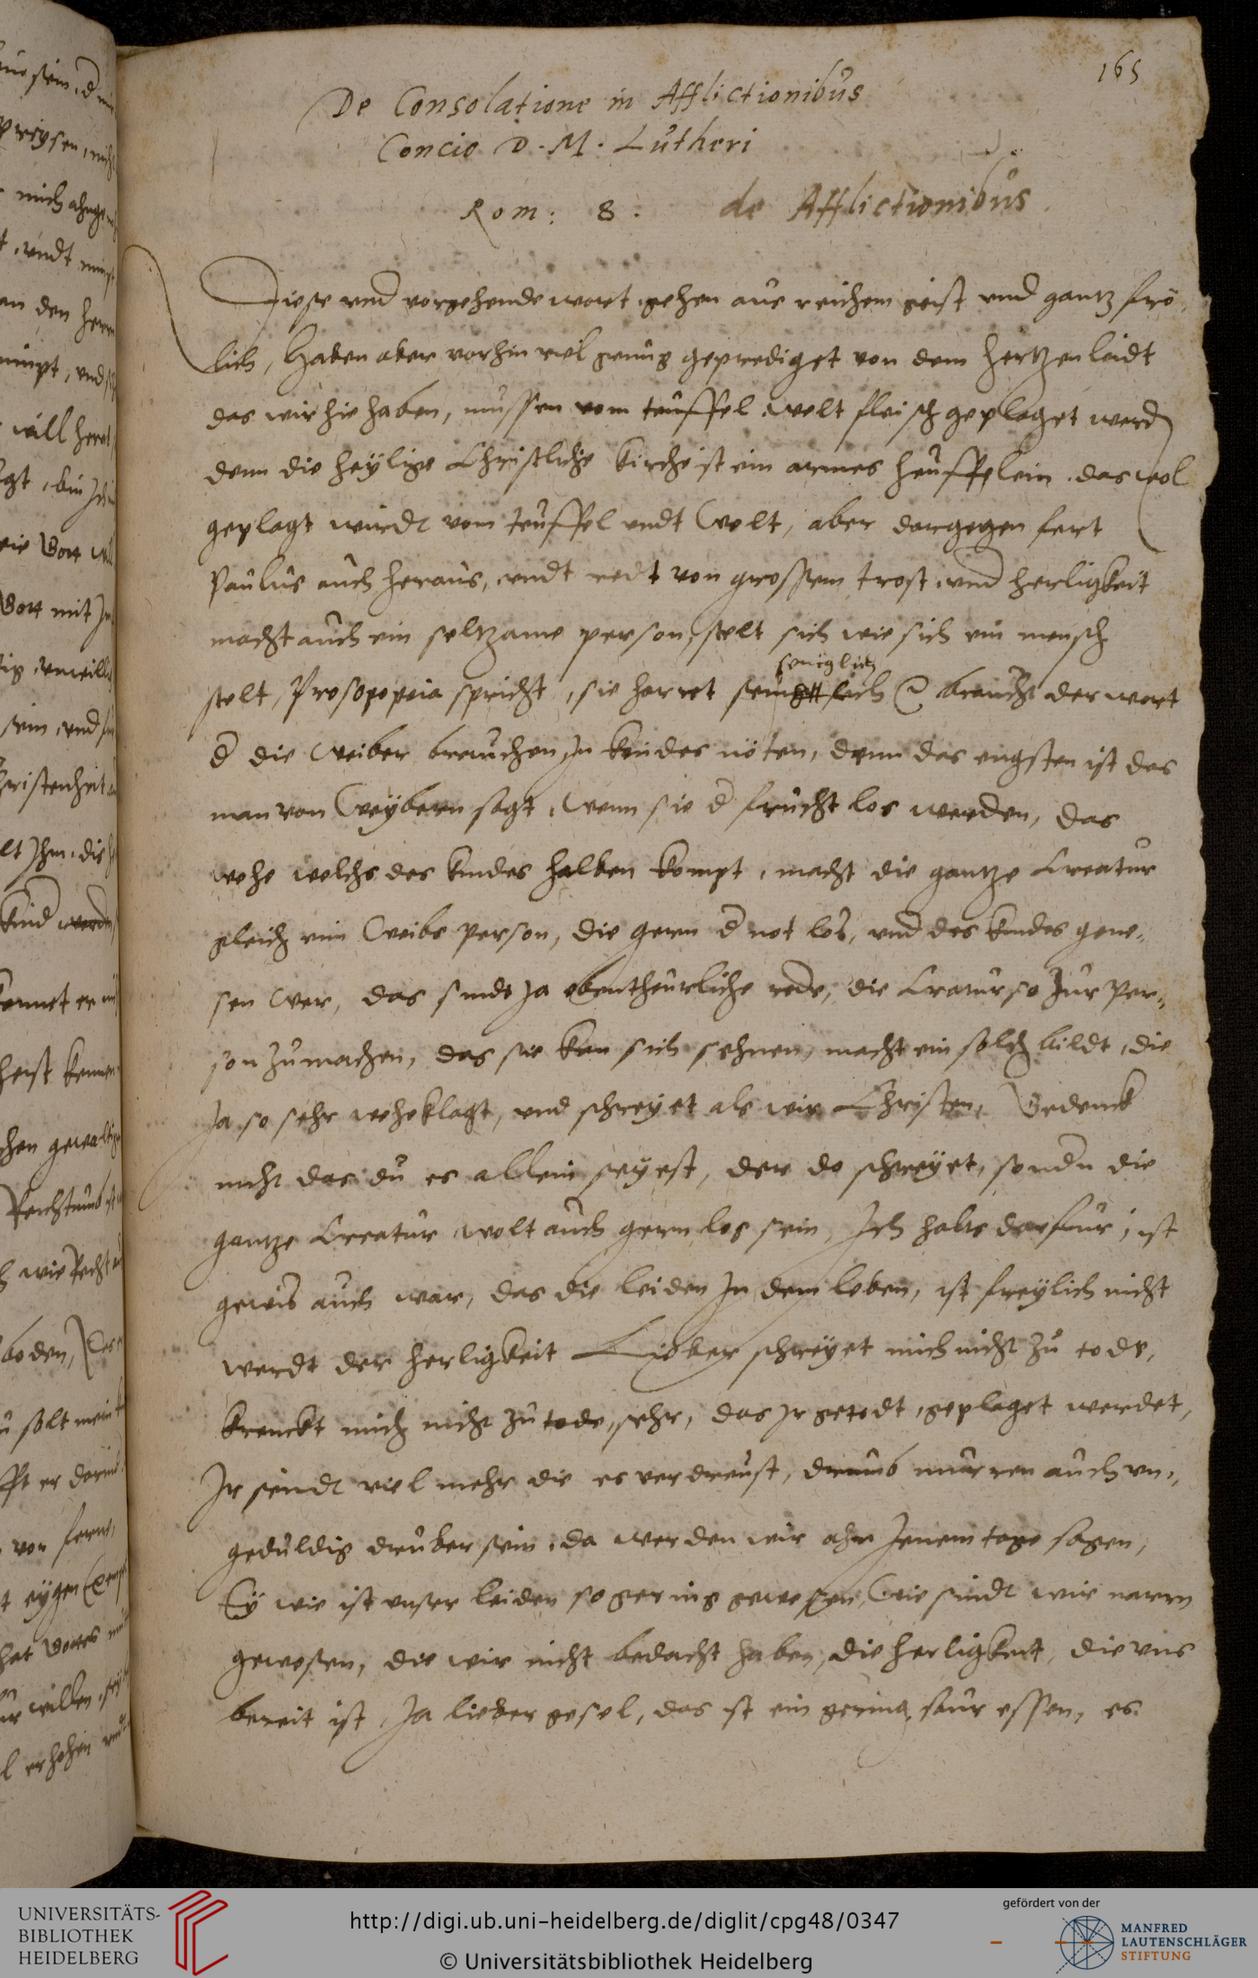 165
De Consolatione in Afflictionibus
Concio D. M. Lutheri
Rom: 8. de Afflictionibus
Diese vnd vorgehende wort gehen aus reichem geist vnd gantz frö-
lich, Haben aber vorhin viel genug geprediget von dem hertzenleidt
das wir hie haben, mussen vom teuffel welt fleisch geplaget werd
denn die heylige Christliche kirche ist ein armes heuffelein das wol
geplagt wirdt vom teuffel vndt Welt, aber dargegen fert
Paulus auch heraus, vndt redt von grossem trost vnd herligkeit
macht auch ein seltzame person, stelt sich wie sich ein mensch
stelt, Prosopopeia spricht, sie harret braucht der wort
d die Weiber brauchen In kindes nöten, denn das engsten ist das
man von Weybern sagt, Wenn sie d frucht los werden, das
wehe welchs des kindes halben kompt, macht die gantze Creatur
gleich eim Weibs person, die gern d not los, vnd des kindes gene-
sen wer, das sindt Ja ebentheurliche rede, die Cratur so zur per-
son zumachen, das sie kan sich sehnen, macht ein solch bildt, die
Ja so sehr weheklagt, vnd schreyet als wir Christen, Gedenck
nicht das du es allein seyest, der do schreyet, sondn die
gantze Creatur wolt auch gern los sein, Ich halts darfur, ist
gewis auch war, das die leiden In dem leben, ist freylich nicht
werdt der herligkeit Lieber schreyet mich nicht zu tode,
krenckt mich nicht zu tode, sehr, das Ir getodt, geplaget werdet,
Ir seindt viel mehr die es verdreust, drumb murren auch vn-
geduldig druber sein, da werden wir ahn Jenem tage sagen,
Ey wie ist vnser leiden so gering gewesen, Wie sindt wir narrn
gewesen, die wir nicht bedacht haben, die herligkeit, die vns
bereit ist, Ja lieber gesel, das ist ein gering saur essen, es
UNIVERSITÄTS-
BIBLIOTHEK
HEIDELBERG
http://digi.ub.uni-heidelberg.de/diglit/cpg48/0347
© Universitätsbibliothek Heidelberg
gefördert von der
MANFRED
LAUTENSCHLÄGER
STIFTUNG